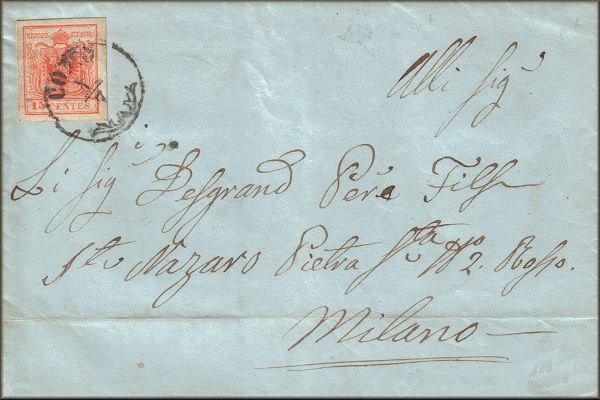 COMO
15 CENTES.
Alli Sig.ri
Li Sig.ri Desgrand Père Fils
S.t Nazaro Pietra S.ta N.o 2. Rosso.
Milano